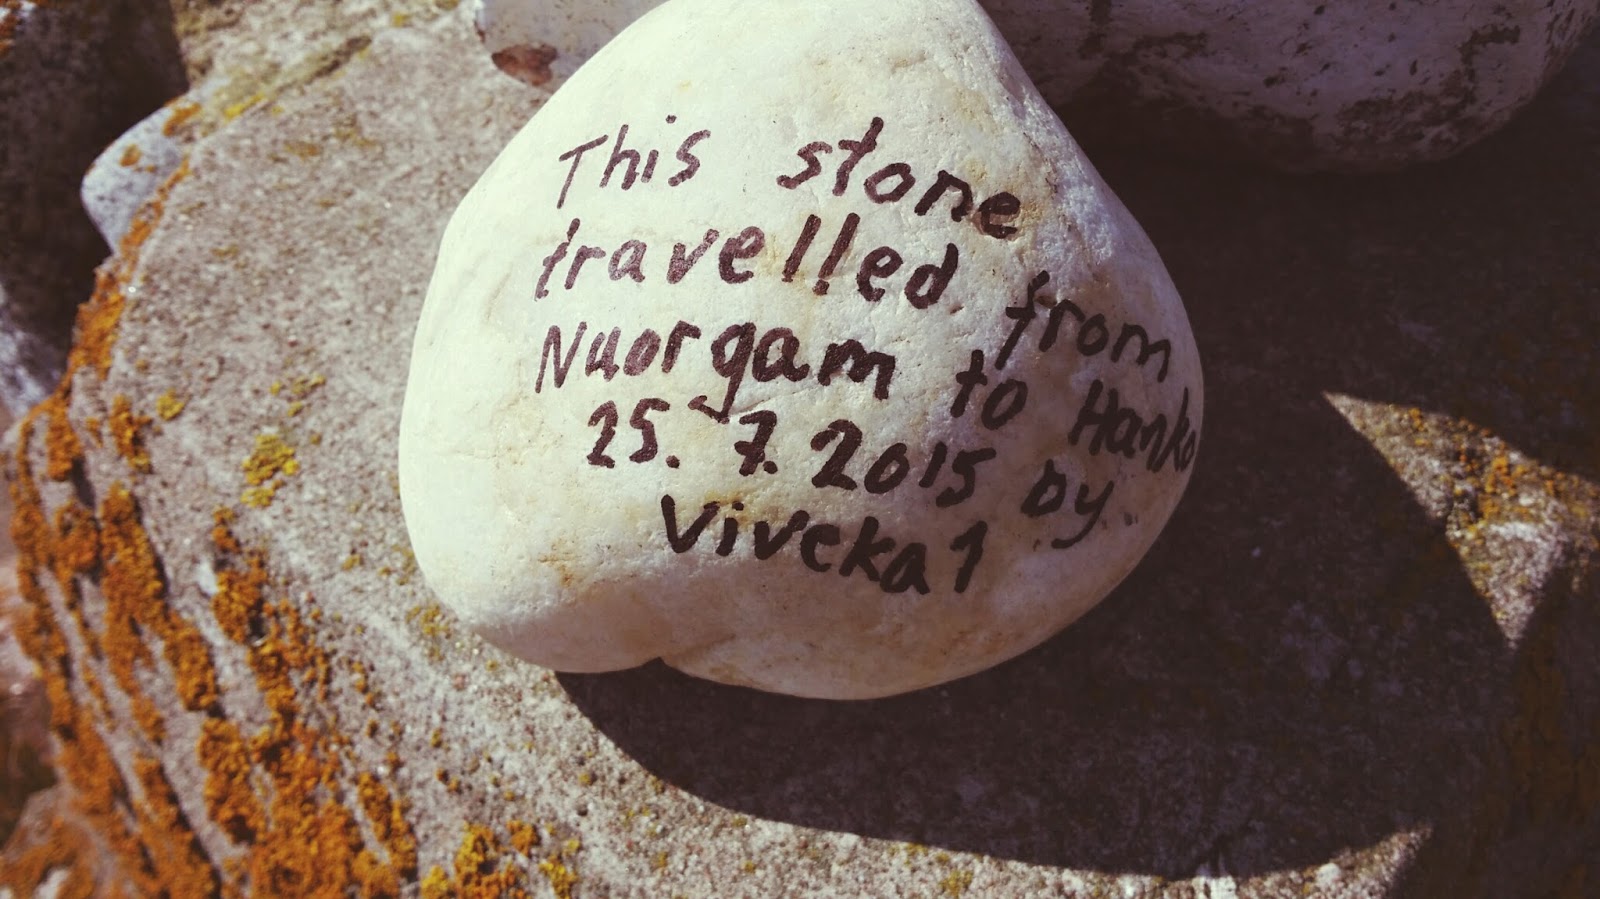 This stone
travelled from
Nuorgam to Hanko
25.7.2015 by
Viveka1